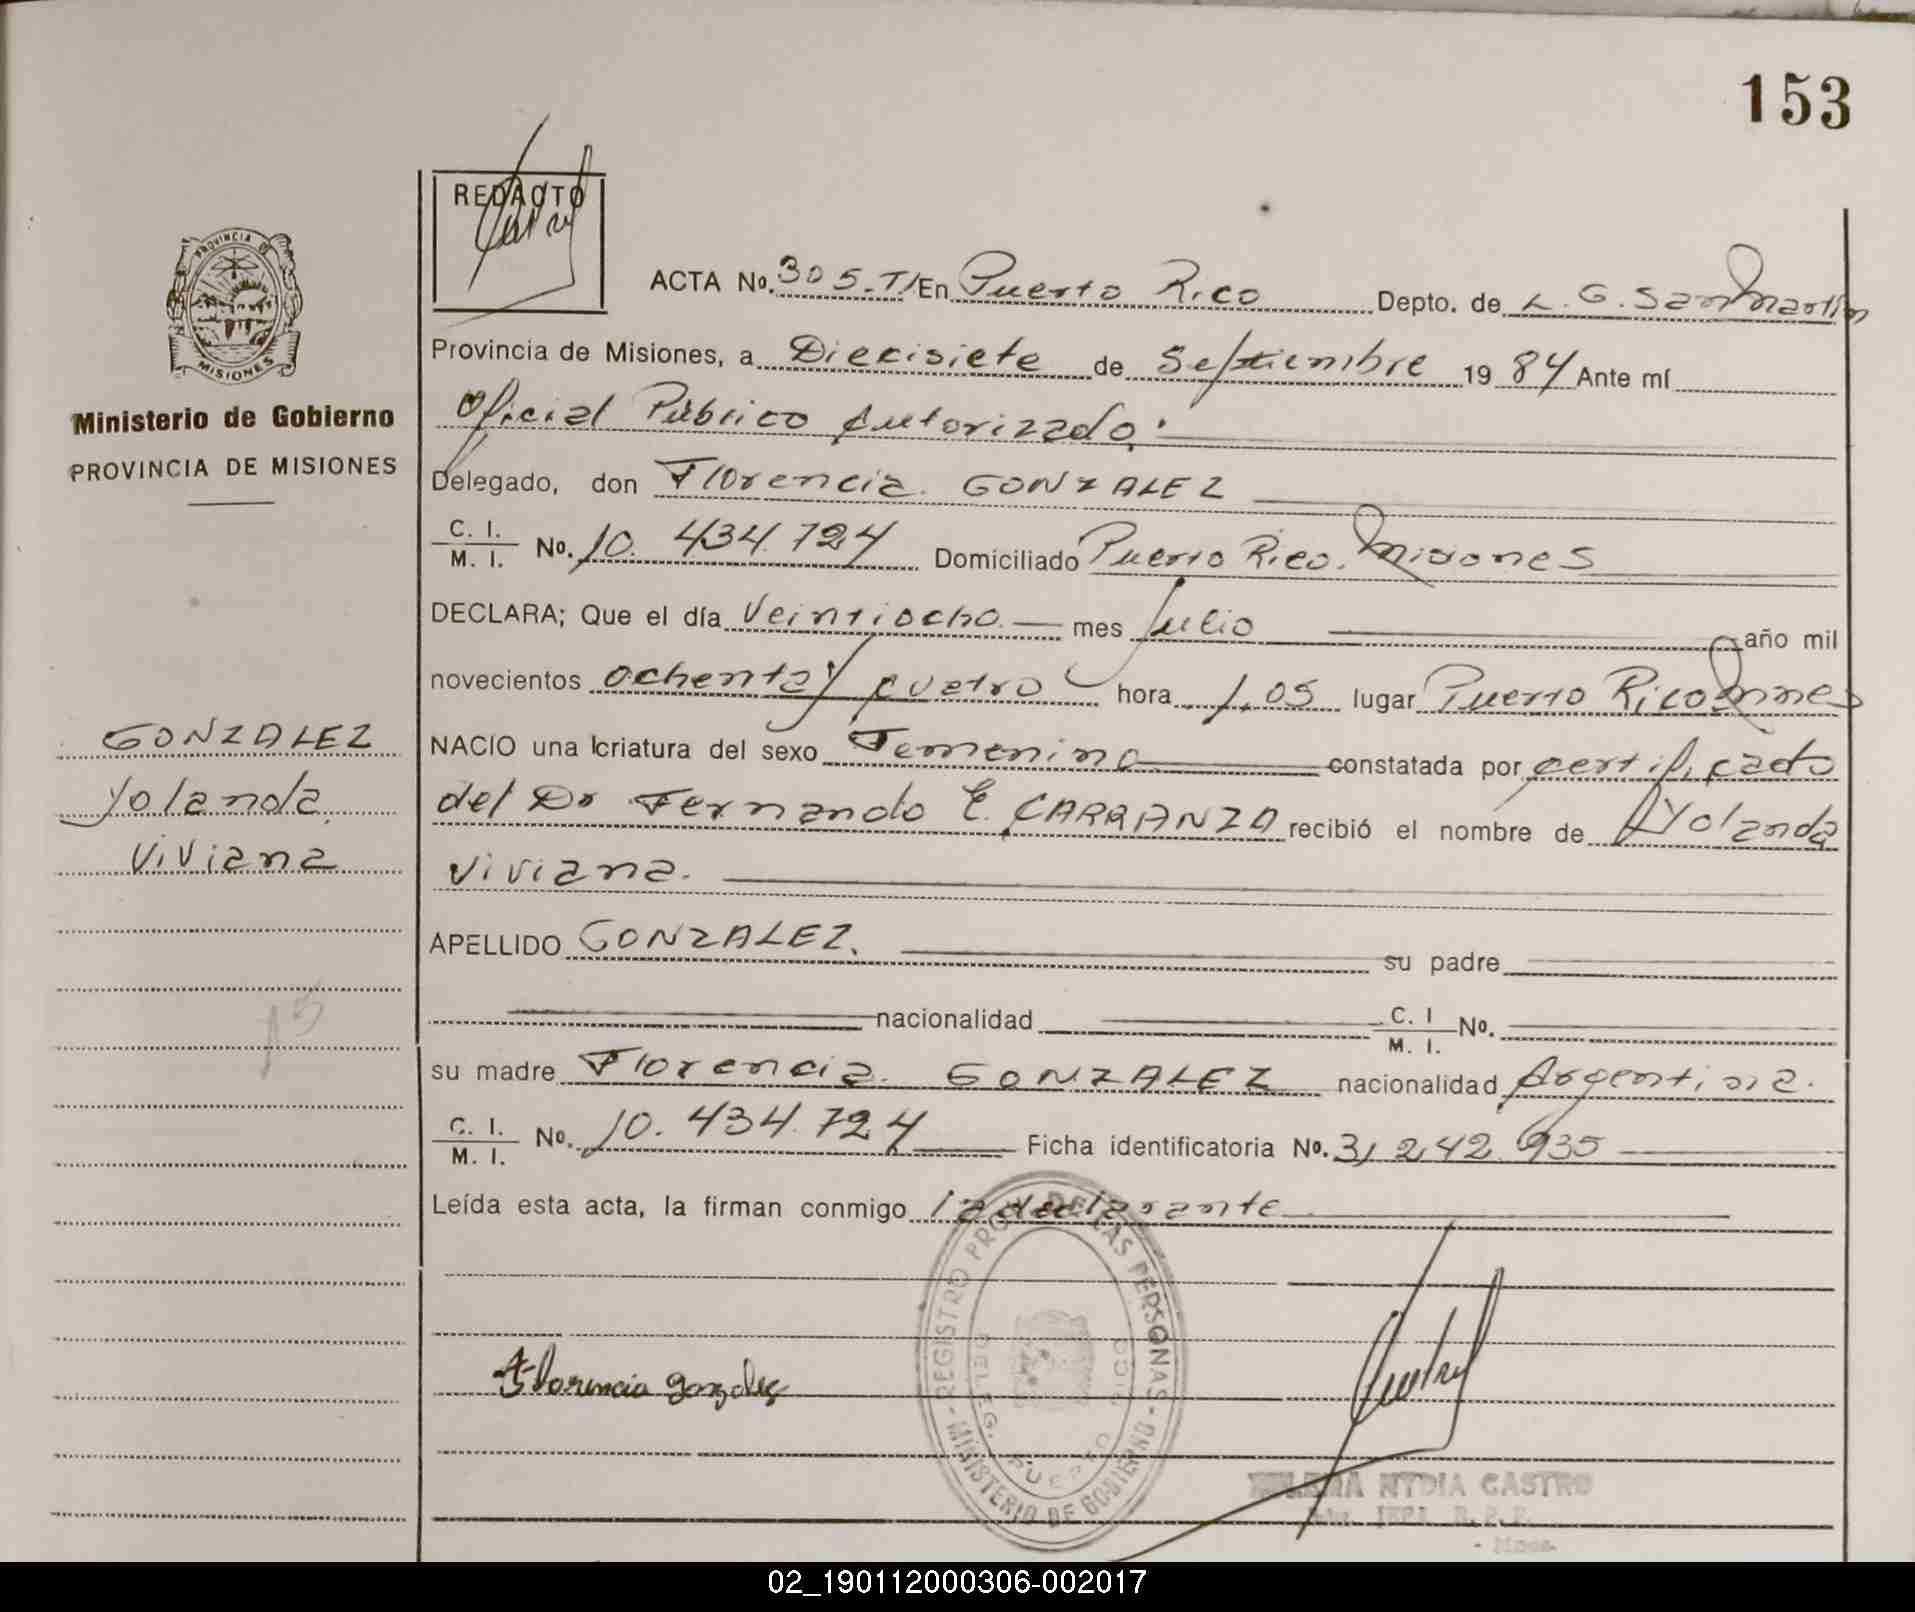 153
REDACTO
ACTA No. 305-T/ En Puerto Rico Depto. de L. G. San Martín
PROVINCIA DE
MISIONES
Provincia de Misiones, a Diecisiete de Septiembre 19 84 Ante mí
Ministerio de Gobierno
Oficial Público Autorizado:
PROVINCIA DE MISIONES
Delegado, don Florencia GONZALEZ
C. I. / M. I. No. 10.434.724 Domiciliado Puerto Rico. Misiones
DECLARA; Que el día Veintiocho mes Julio año mil
novecientos ochenta y cuatro hora 1,05 lugar Puerto Rico Mnes
GONZALEZ
NACIO una criatura del sexo Femenino constatada por certificado
Yolanda
del Dr Fernando E. CARRANZA recibió el nombre de Yolanda
Viviana
Viviana.
APELLIDO GONZALEZ. su padre
nacionalidad C. I / M. I. No.
15
su madre Florencia GONZALEZ nacionalidad Argentina.
C. I. / M. I. No. 10.434.724 Ficha identificatoria No. 31.242.935
Leída esta acta, la firman conmigo la declarante
REGISTRO PROV. DE LAS PERSONAS - MINISTERIO DE GOBIERNO -
DELEG. PUERTO RICO
Florencia gonzalez
NYDIA CASTRO
R. P. P.
02_190112000306-002017